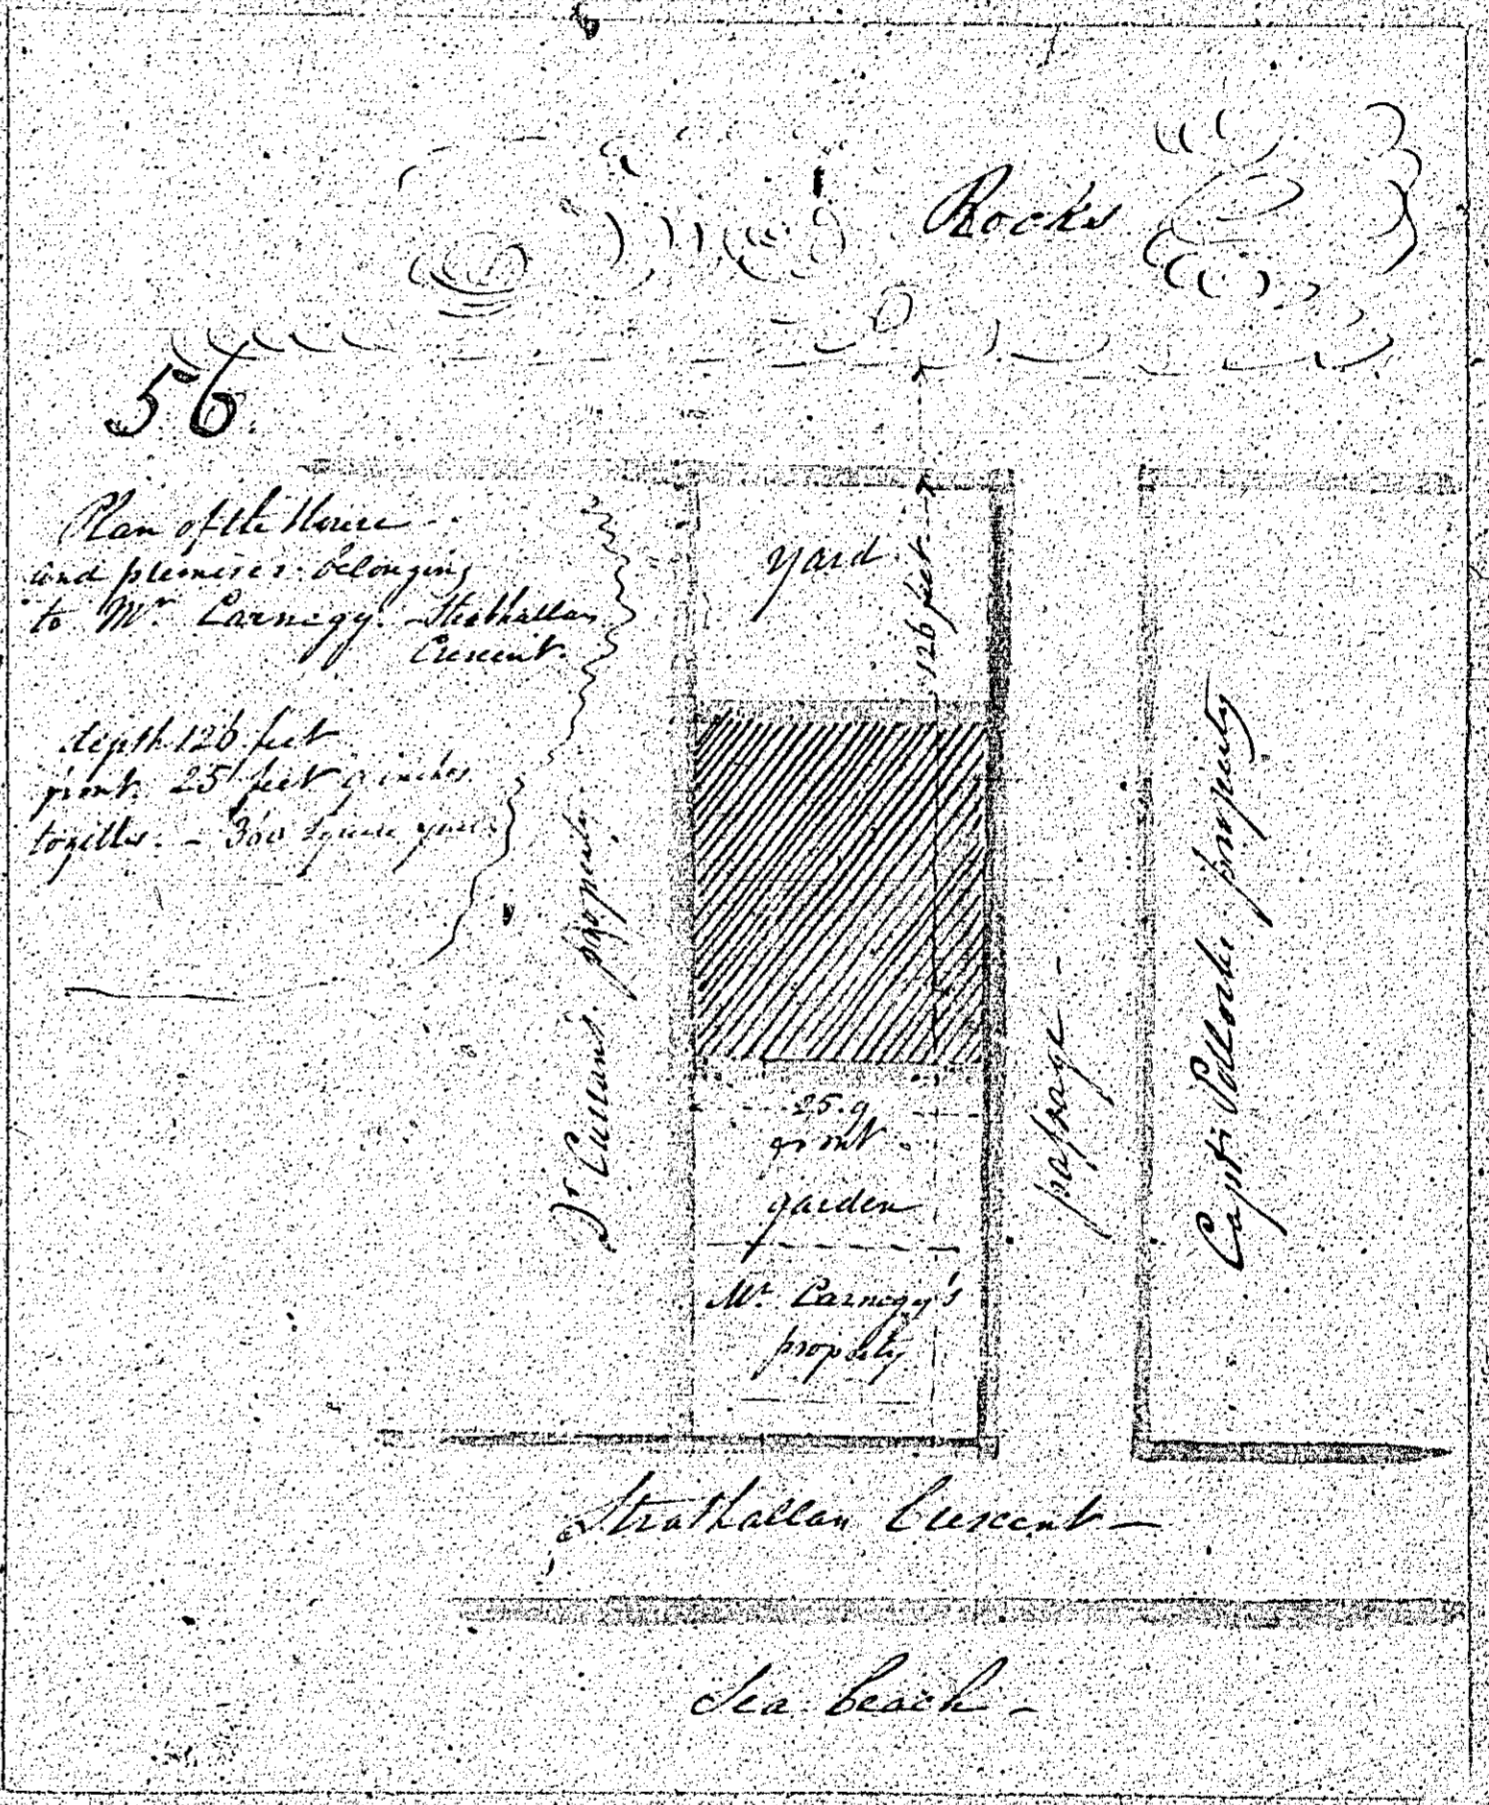 Rocks
56.
Plan of the House
and premises belonging
to Mr. Carnegy. Strathallan
Crescent.
depth 126 feet
front 25 feet 9 inches
together. - 360 square yards
yard
126 feet
Dr Cullans. property
25.9
front
garden
Mr. Carnegy's
property
passage -
Capt: Pollocks property
Strathallan Crescent -
Sea beach -